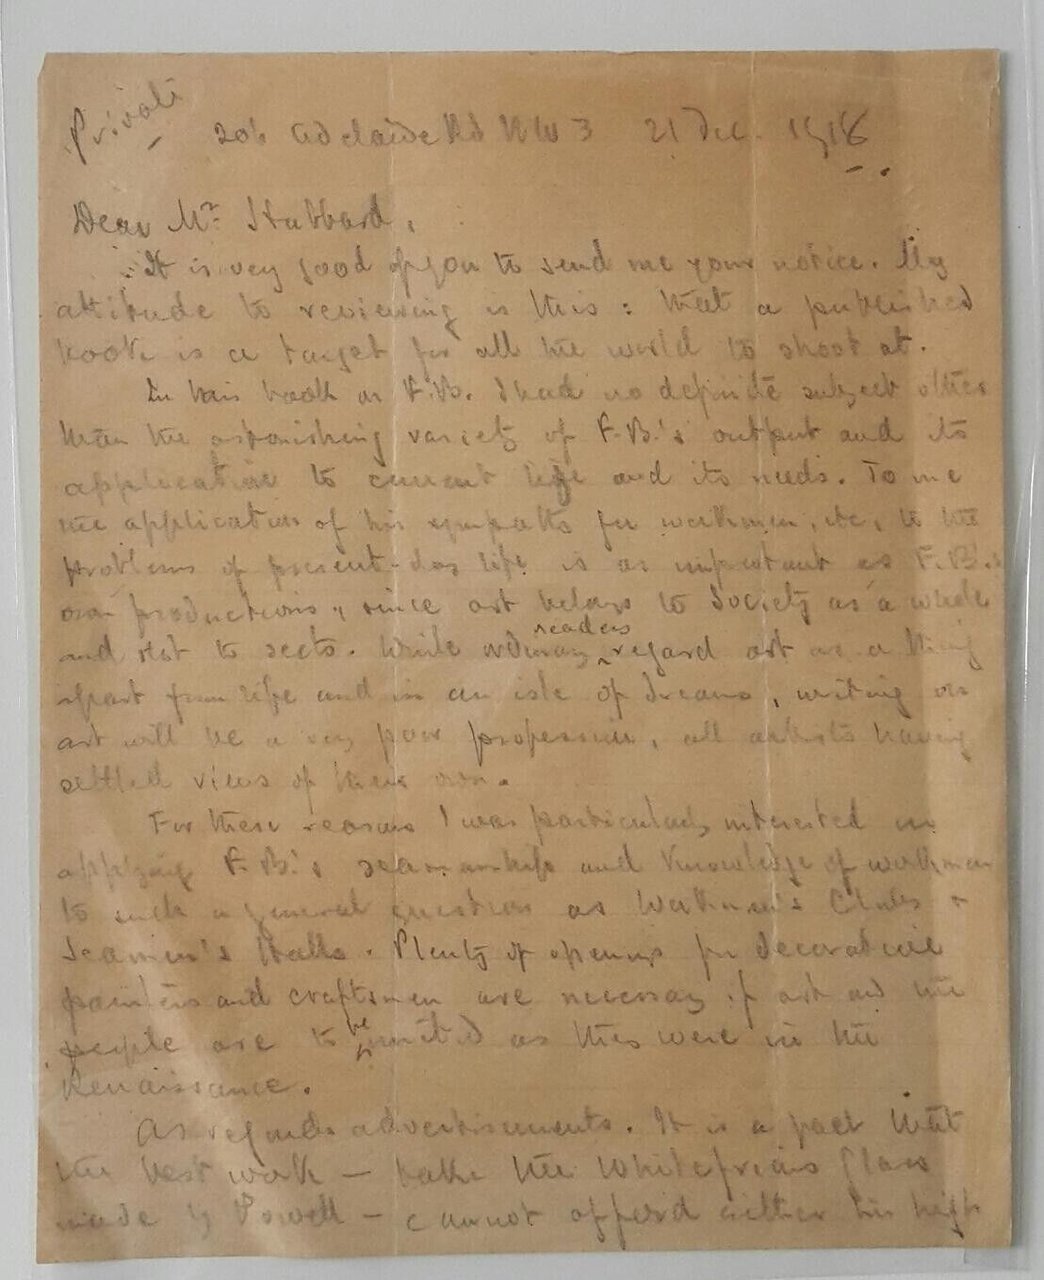 Private
206 Adelaide Rd NW3 21 Dec. 1918
Dear Mr. Hubbard,
It is very good of you to send me your notice. My
attitude to reviewing is this: that a published
book is a target for all the world to shoot at.
In this book on F.B. I had no definite subject other
than the astonishing variety of F.B.'s output and its
application to current life and its needs. To me
the application of his sympathy for workmen, etc, to the
problems of present-day life is as important as F.B.'s
own productions, since art belongs to Society as a whole
and not to sects. While ordinary readers regard art as a thing
apart from life and in an isle of dreams, writing on
art will be a very poor profession, all artists having
settled views of their own.
For these reasons I was particularly interested in
applying F.B.'s seamanship and knowledge of workmen
to such a general question as Workmen's Clubs &
Seamen's Halls. Plenty of openings for decorative
painters and craftsmen are necessary if art and the
people are to be united as they were in the
Renaissance.
As regards advertisements. It is a fact that
the best work – take the Whitefriars Glass
made by Powell – cannot afford either his high